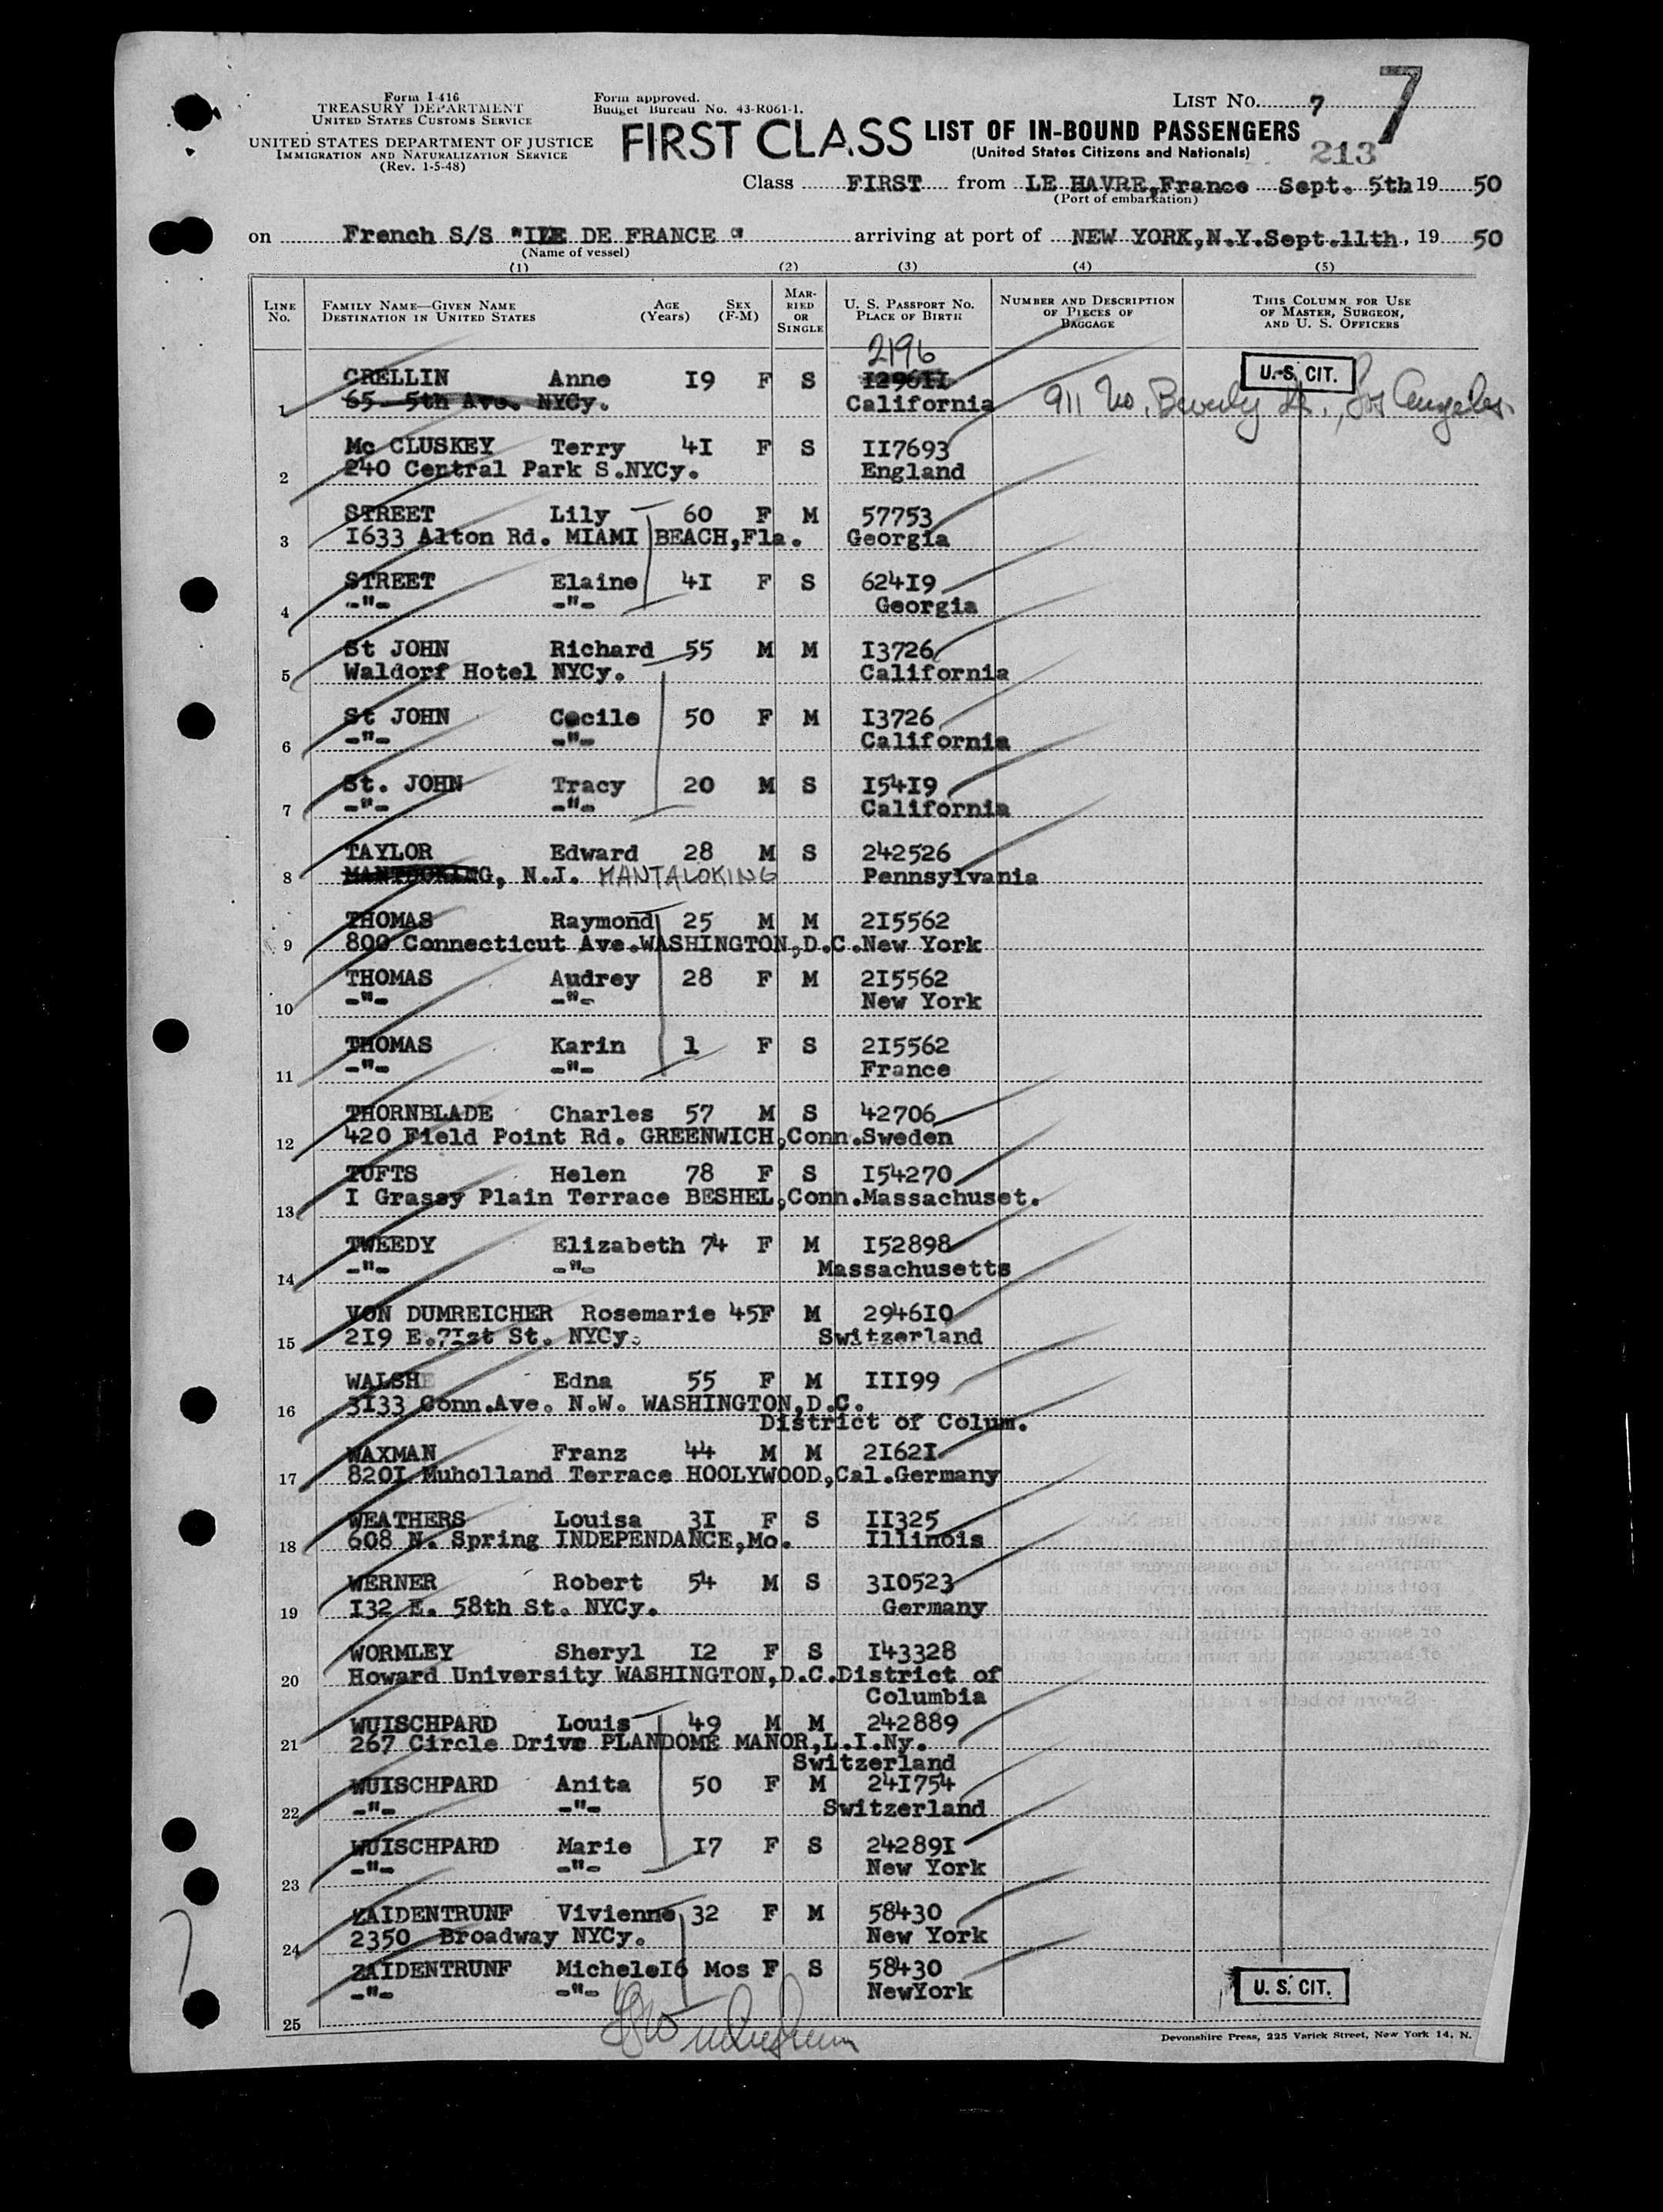 Form I-416
TREASURY DEPARTMENT
UNITED STATES CUSTOMS SERVICE
UNITED STATES DEPARTMENT OF JUSTICE
IMMIGRATION AND NATURALIZATION SERVICE
(Rev. 1-5-48)
Form approved.
Budget Bureau No. 43-R061-1.
LIST No. 7
7
FIRST CLASS LIST OF IN-BOUND PASSENGERS
(United States Citizens and Nationals)
213
Class FIRST from LE HAVRE,France Sept. 5th 19 50
(Port of embarkation)
on French S/S "ILE DE FRANCE " arriving at port of NEW YORK,N.Y.Sept.11th, 19 50
(Name of vessel)
(1) (2) (3) (4) (5)
LINE No. FAMILY NAME—GIVEN NAME DESTINATION IN UNITED STATES AGE (Years) SEX (F-M) MARRIED OR SINGLE U. S. PASSPORT NO. PLACE OF BIRTH NUMBER AND DESCRIPTION OF PIECES OF BAGGAGE THIS COLUMN FOR USE OF MASTER, SURGEON, AND U. S. OFFICERS
2196
CRELLIN Anne I9 F S I296II U.S. CIT.
1 65 5th Ave. NYCy. California 911 No. Beverly Dr., Los Angeles
Mc CLUSKEY Terry 4I F S II7693
2 240 Central Park S.NYCy. England
STREET Lily 60 F M 57753
3 I633 Alton Rd. MIAMI BEACH,Fla. Georgia
STREET Elaine 4I F S 624I9
4 -"- -"- Georgia
St JOHN Richard 55 M M I3726
5 Waldorf Hotel NYCy. California
St JOHN Cecile 50 F M I3726
6 -"- -"- California
St. JOHN Tracy 20 M S I54I9
7 -"- -"- California
TAYLOR Edward 28 M S 242526
8 , N.J. MANTALOKING Pennsylvania
THOMAS Raymond 25 M M 2I5562
9 800 Connecticut Ave.WASHINGTON,D.C.New York
THOMAS Audrey 28 F M 2I5562
10 -"- -"- New York
THOMAS Karin 1 F S 2I5562
11 -"- -"- France
THORNBLADE Charles 57 M S 42706
12 420 Field Point Rd. GREENWICH,Conn.Sweden
TUFTS Helen 78 F S I54270
13 I Grassy Plain Terrace BESHEL,Conn.Massachuset.
TWEEDY Elizabeth 74 F M I52898
14 -"- -"- Massachusetts
VON DUMREICHER Rosemarie 45F M 2946I0
15 2I9 E.7Ist St. NYCy. Switzerland
WALSHE Edna 55 F M III99
16 3I33 Conn.Ave. N.W. WASHINGTON,D.C.
District of Colum.
WAXMAN Franz 44 M M 2I62I
17 820I Muholland Terrace HOOLYWOOD,Cal.Germany
WEATHERS Louisa 3I F S II325
18 608 N. Spring INDEPENDANCE,Mo. Illinois
WERNER Robert 54 M S 3I0523
19 I32 E. 58th St. NYCy. Germany
WORMLEY Sheryl I2 F S I43328
20 Howard University WASHINGTON,D.C.District of
Columbia
WUISCHPARD Louis 49 M M 242889
21 267 Circle Drive PLANDOME MANOR,L.I.Ny.
Switzerland
WUISCHPARD Anita 50 F M 24I754
22 -"- -"- Switzerland
WUISCHPARD Marie I7 F S 24289I
23 -"- -"- New York
ZAIDENTRUNF Vivienne 32 F M 58430
24 2350 Broadway NYCy. New York
ZAIDENTRUNF MicheleI6 Mos F S 58430
-"- -"- NewYork U. S. CIT.
25
Devonshire Press, 225 Varick Street, New York 14, N.